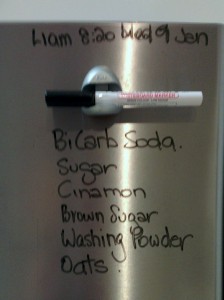 Liam 8:20 Wed 9 Jan
BiCarb Soda.
Sugar
Cinamon
Brown Sugar
Washing Powder
Oats.